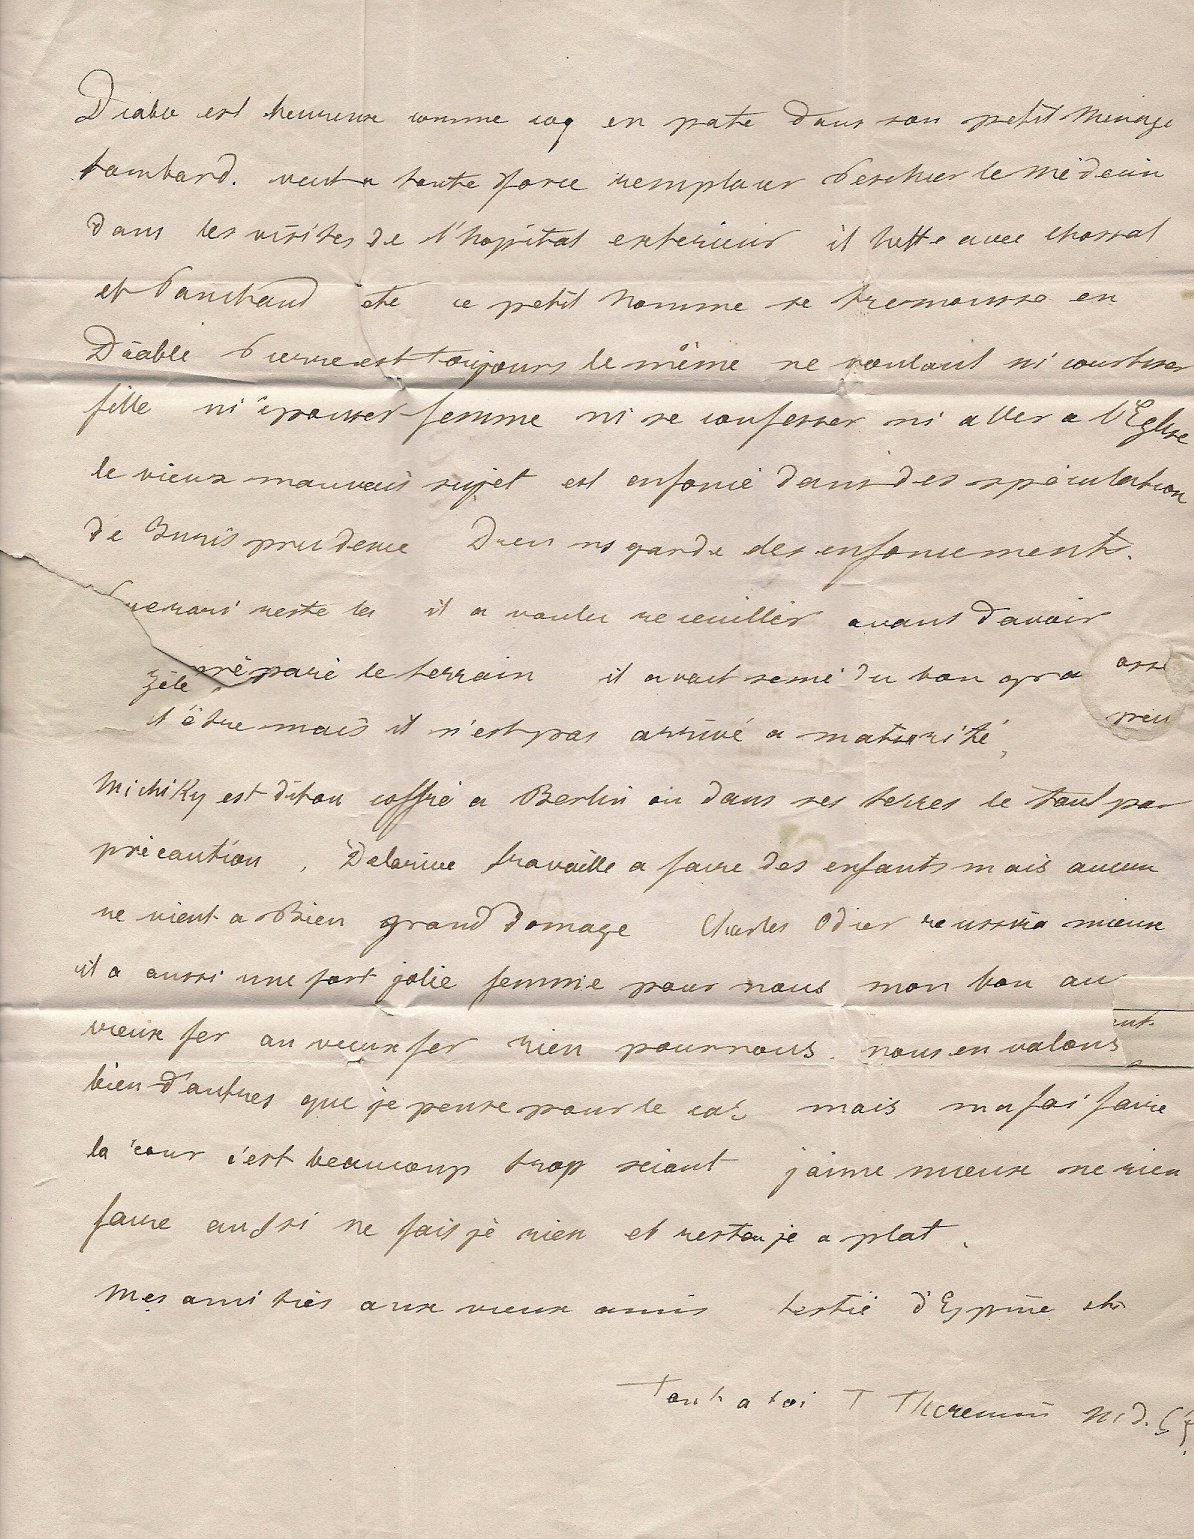 Diable est heureux comme coq en pate dans son petit menage
Lombard. veut a toute force remplacer Peschier le Médecin
dans les visites de l'hopital exterieur il lutte avec Chossat
et Panchaud etc ce petit homme se tremousse en
Diable Pierre est toujours le même ne voulant ni courtiser
fille ni épouser femme ni se confesser ni aller a l'Eglise
le vieux mauvais sujet est enfoncé dans des spéculation
de Jurisprudence Dieu ns garde des enfoncements.
reste la il a voulu receuillir avant d'avoir
préparé le terrain il avait semé du bon gra asse
zèle peu
t être mais il n'est pas arrivé a maturité,
Michiky est diton coffré a Berlin ou dans ses terres le tout par
précaution, Delarive travaille a faire des enfants mais aucun
ne vient a Bien grand domage Charles Odier reussira mieux
il a aussi une fort jolie femme pour nous mon bon au
vieux fer au vieux fer rien pour nous. nous en valons
bien d'autres que je pense pour le cas mais ma foi faire
la cour c'est beaucoup trop sciant j'aime mieux ne rien
faire aussi ne fais jè rien et restai je a plat.
Mes amitiés aux vieux amis d'Espine etc
Tout a toi T Theremin